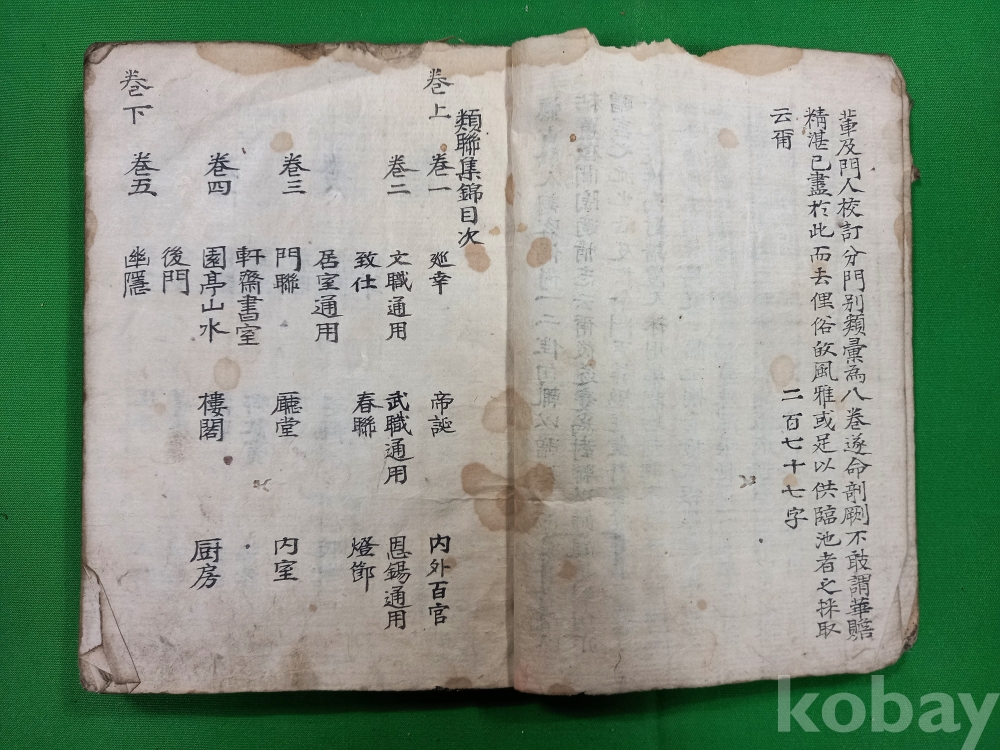 軰及門人校訂分門別類彙為八卷遂命剞劂不敢謂華贍
精湛已盡於此而去俚俗啟風雅或足以供臨池者之採取
云爾
二百七十七字
類聯集錦目次
卷上 卷一 廵幸 帝誕 內外百官
卷二 文職通用 武職通用 恩錫通用
致仕 春聯 燈節
居室通用
卷三 門聯 廳堂 內室
軒齋書室
卷四 園亭山水 樓閣 厨房
後門
卷下 卷五 幽隱
kobay